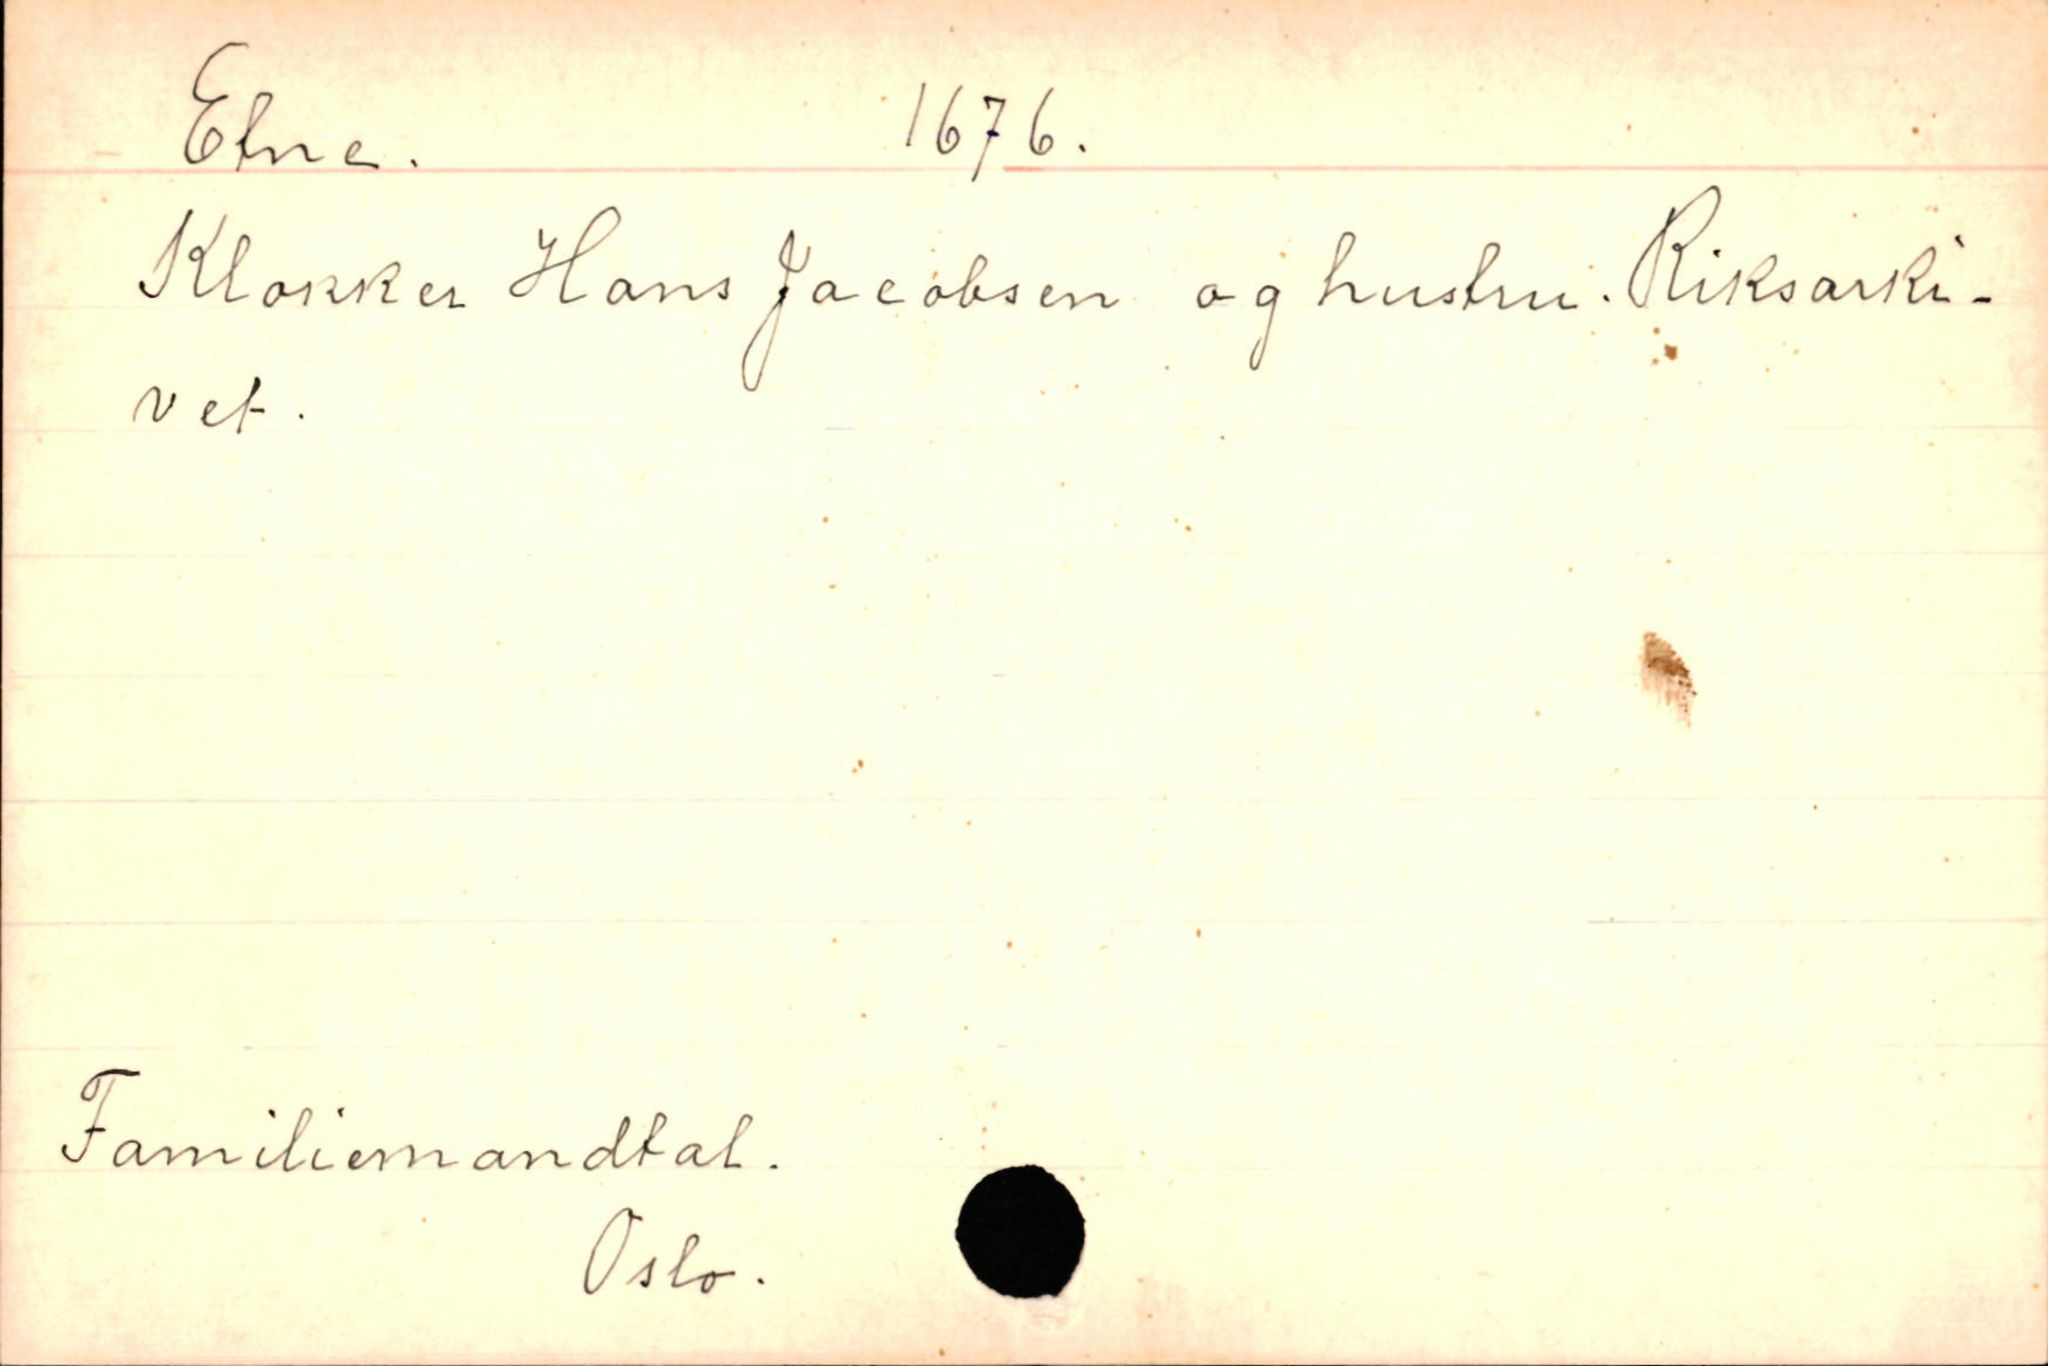 Etne. 1676.
Klokker Hans Jacobsen og hustru. Riksarki-
vet.
Familiemandtal.
Oslo.